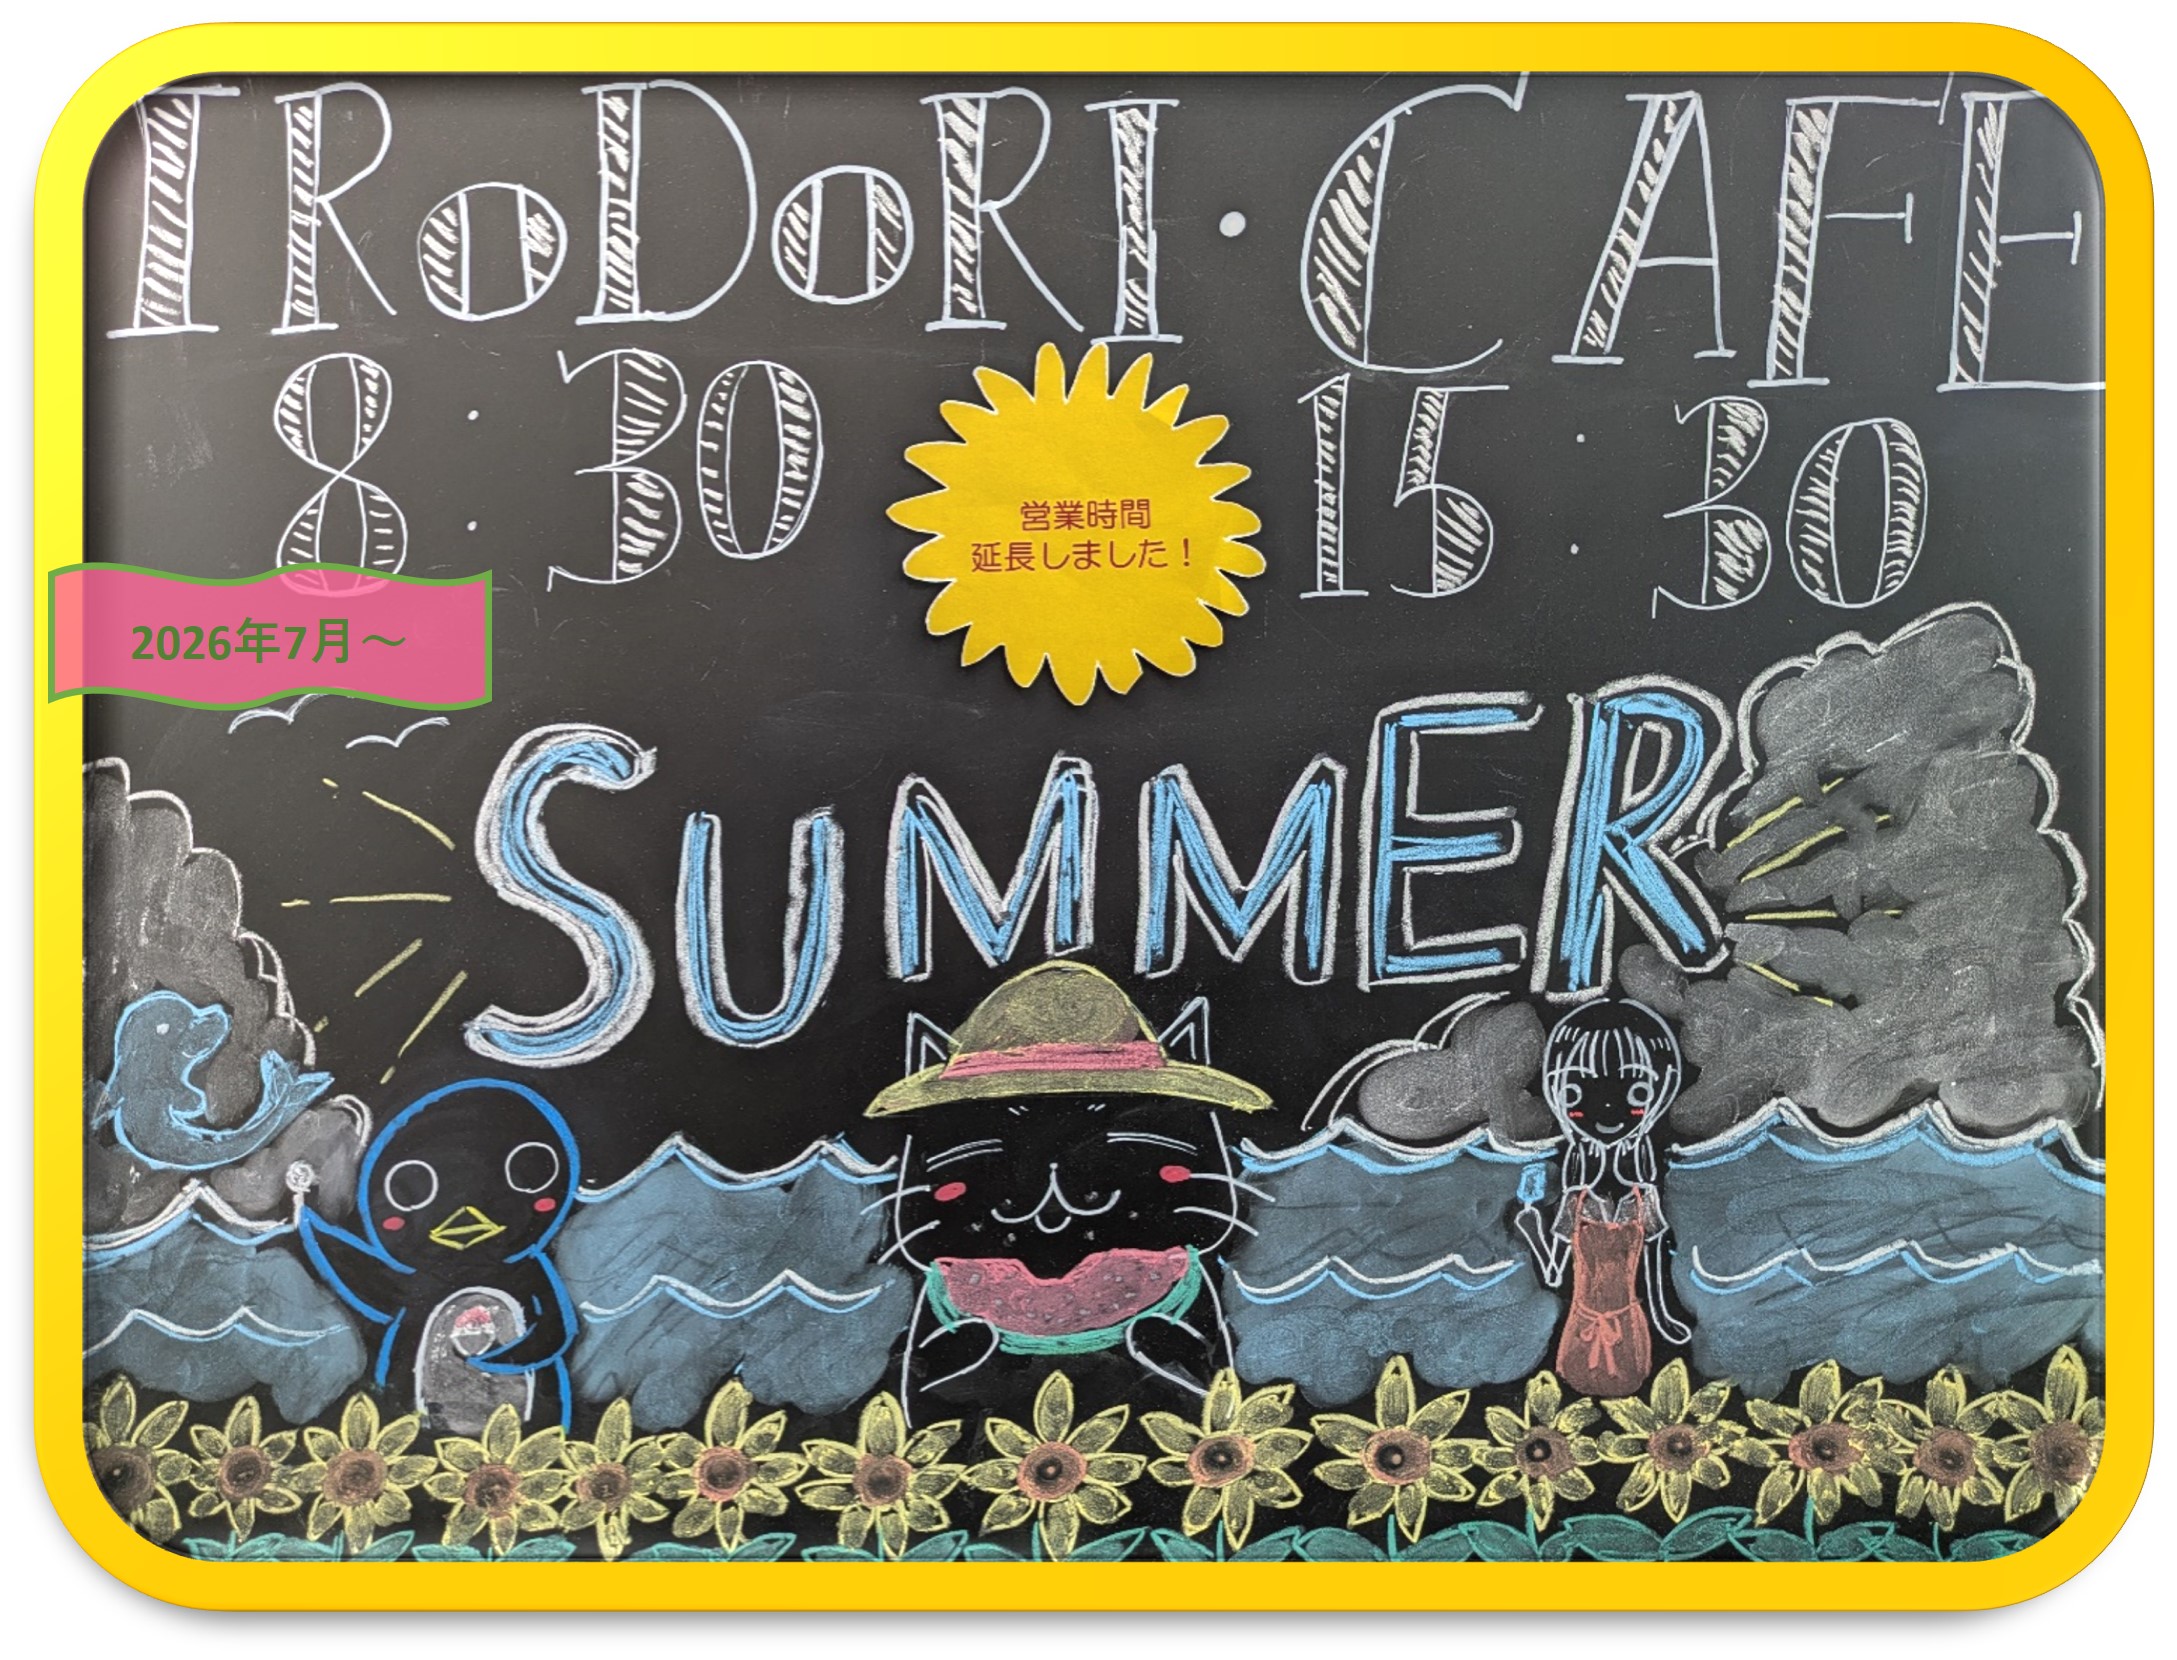 IRoDoRI・CAFE
8:30 15:30
営業時間
延長しました!
2026年7月～
SUMMER